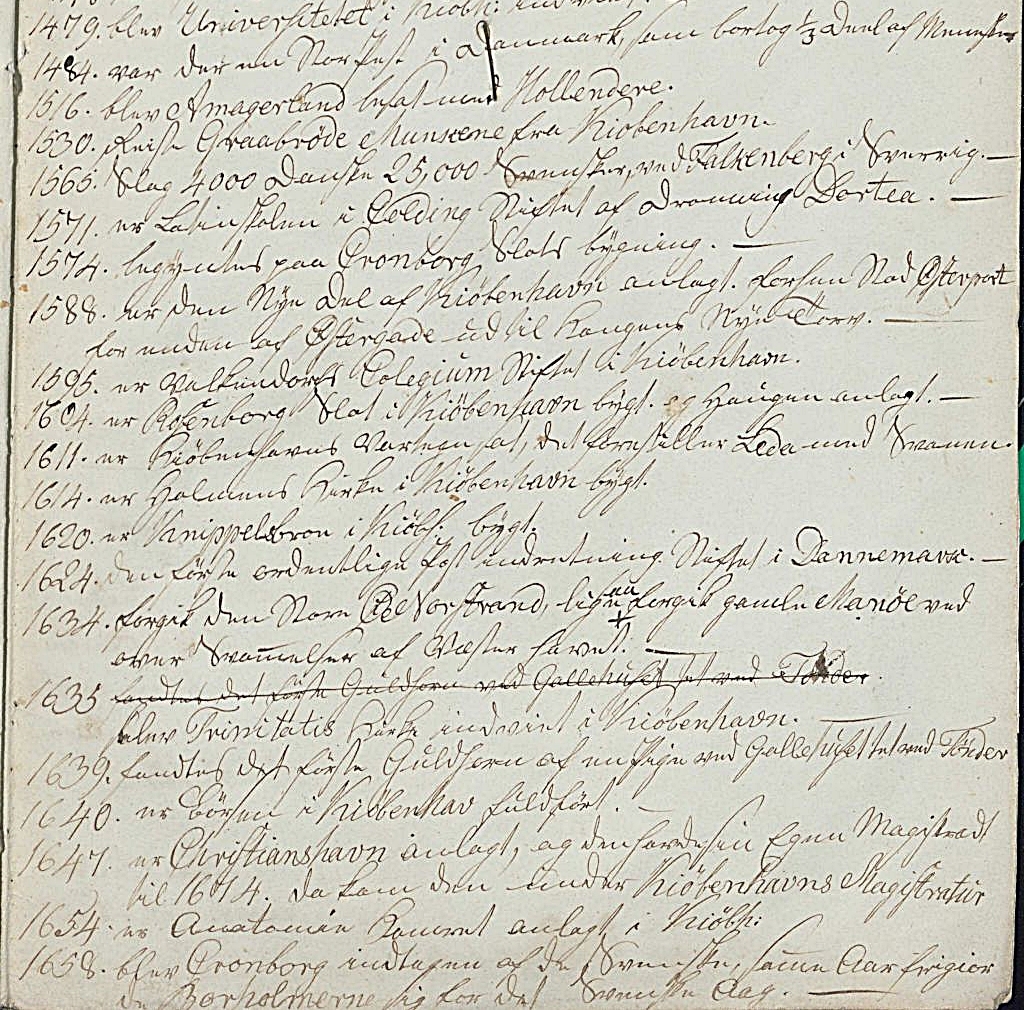 1479. blev Universitetet i Kiöbh: indviet
1484. var der en Stor Pest i Danmark, som bortog 1/3 Deel af Mennesker
1516. blev Amagerland besat med Hollendere.
1530. Reiste Graabrøde Munkene fra Kiobenhavn.
1565. Slog 4000 Danske 25,000 Svensker, ved Falkenberg i Sverrig. —
1571. er Latinskolen i Colding Stiftet af Droning Dortea. —
1574. begyntes paa Cronborg Slots bygning. —
1588. er den Nye Del af Kiöbenhavn anlagt. forhen Stod Østerport
for enden af Østergade ud til Kongens Nye Torv. —
1595. er Valkendorfs Colegium Stiftet i Kiöbenhavn.
1604. er Rosenborg Slot i Kiöbenhavn bygt. og Haugen anlagt. —
1611. er Kiöbenhavns Vartegn sat, det forestiller Leda med Svanen.
1614. er Holmens Kirke i Kiöbenhavn bygt.
1620. er Knippelsbroe i Kiöbh: bygt.
1624. den förste ordentlige Post indretning Stiftet i Dannemark. —
1634. forgik den Store Öe Nordstrand, ligesaa forgik gamle Manöe ved
over Svömmelser af Vester havet. —
1635 fandtes det förste Guldhorn ved Gallehuset tet ved Tönder.
blev Trinitatis Kirke indviet i Kiöbenhavn. —
1639. fandtes det förste Guldhorn af en Pige ved Gallehuset tet ved Tönder
1640. er Börsen i Kiöbenhav fuldfört. —
1647. er Christianshavn anlagt, og den havde sin Egen Magistradt
til 1674. da kom den under Kiöbenhavns Magistratur
1654. er Anatomie Kamret anlagt i Kiöbh:
1658. blev Cronborg indtagen af de Svenske, samme Aar frigior
de Borholmerne sig for det Svenske Aag. —